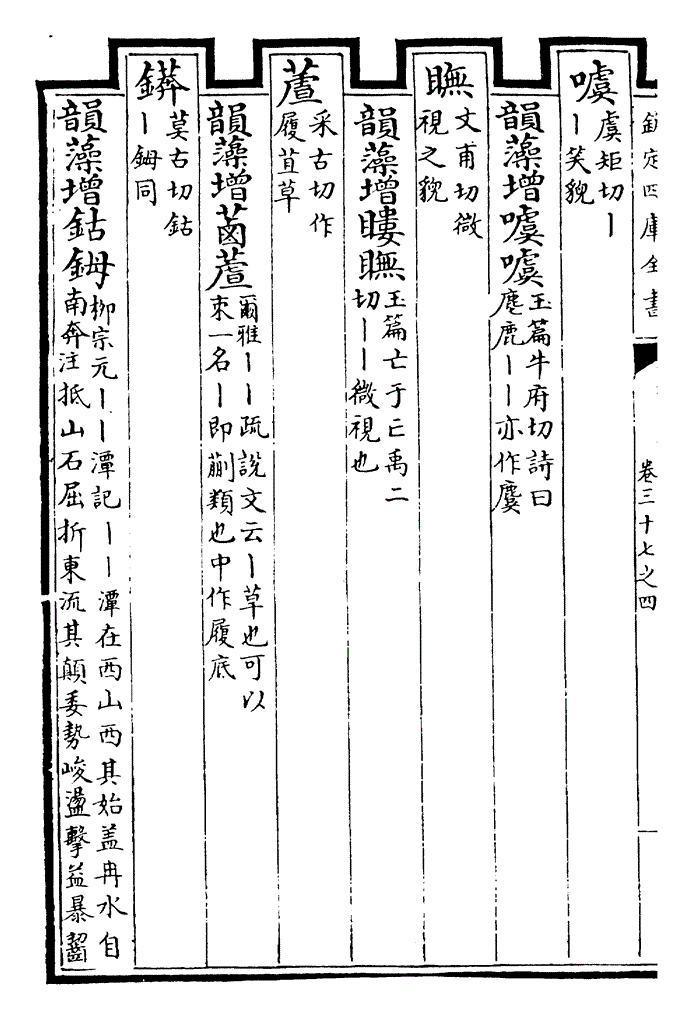 欽定四庫全書
卷三十七之四
噳
虞矩切丨
丨笑貌
韻藻增噳噳
玉篇牛府切詩曰
麀鹿丨丨亦作麌
瞴
文甫切微
視之貌
韻藻增瞜瞴
玉篇亡于亡禹二
切丨丨微視也
蔖
采古切作
履苴草
韻藻增菡蔖
爾雅丨丨疏說文云丨草也可以
束一名丨即蒯類也中作履底
䥈
莫古切鈷
丨鉧同
韻藻增鈷鉧
柳宗元丨丨潭記丨丨潭在西山西其始盖冉水自
南奔注抵山石屈折東流其顛委勢峻盪擊益暴齧